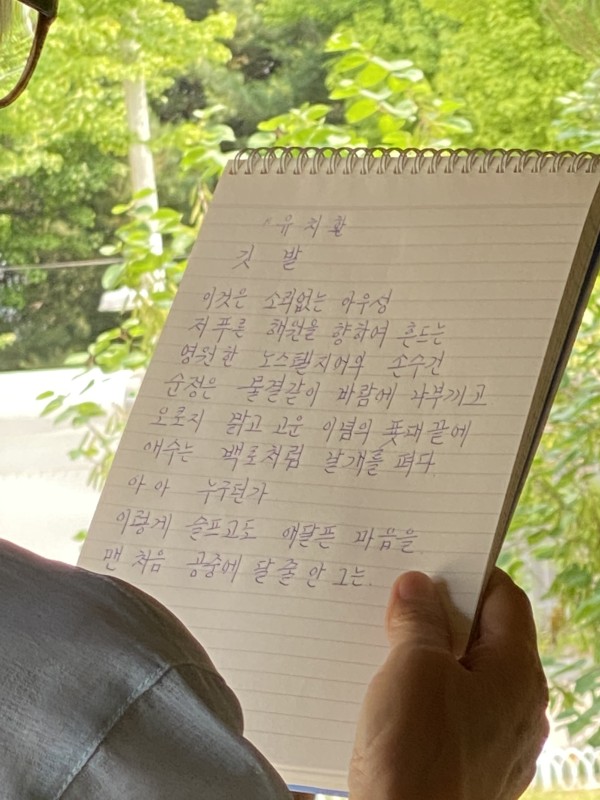 유치환
깃 발
이것은 소리없는 아우성
저 푸른 해원을 향하여 흔드는
영원한 노스텔지어의 손수건
순정은 물결같이 바람에 나부끼고
오로지 맑고 고운 이념의 푯대 끝에
애수는 백로처럼 날개를 펴다.
아 아 누구던가
이렇게 슬프고도 애닲픈 마음을
맨 처음 공중에 달 줄 안 그는.